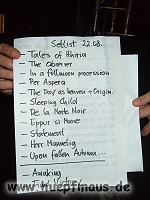 Setlist 22.08.
- Tales of Ithiria
- The Observer
- In a fullmoon procession
- Per Aspera
- The Day as heaven + Origin.
- Sleeping Child
- De la Morte Noir
- Eppur si muove
- Statement
- Herr Mannelig
- Upon fallen Autumn...
- Awaking
www.huepfmaus.de